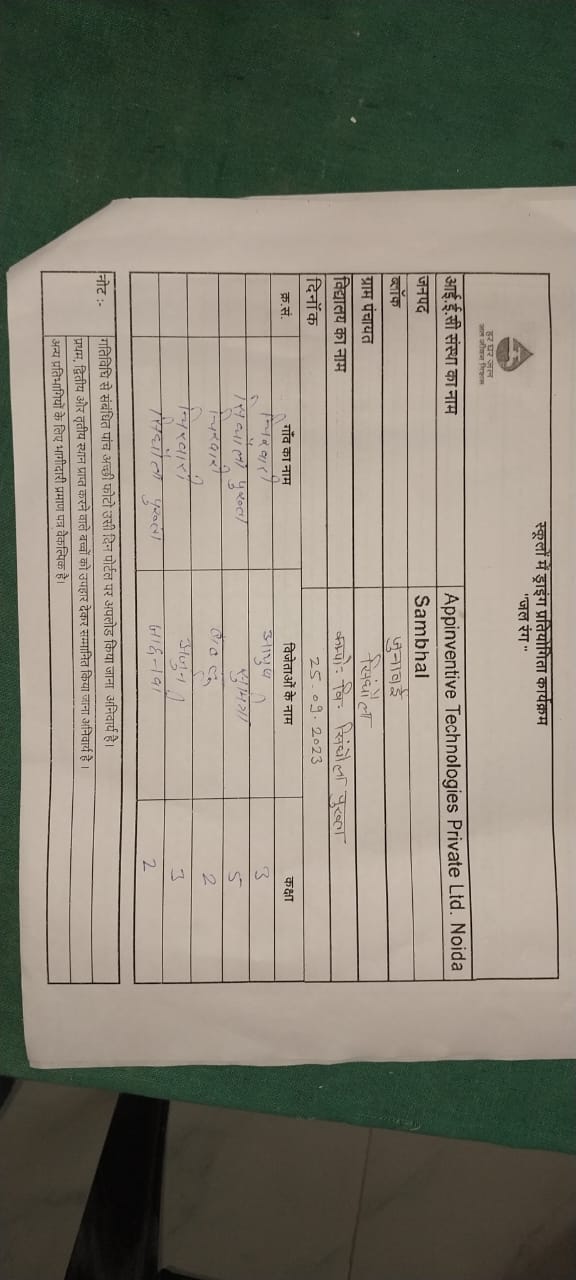 स्कूलों में ड्राइंग प्रतियोगिता कार्यक्रम
"जल रंग"
हर घर जल
जल जीवन मिशन
आई.ई.सी संस्था का नाम Appinventive Technologies Private Ltd. Noida
जनपद Sambhal
ब्लॉक जुनावई
ग्राम पंचायत सिंघौला
विद्यालय का नाम कम्पो. वि. सिंघौला पुख्ता
दिनाँक 25.09.2023
क्र.सं. गाँव का नाम विजेताओं के नाम कक्षा
3
सिंघौला पुख्ता 5
2
3
सिंघौला पुख्ता 2
नोट :- गतिविधि से संबंधित पांच अच्छी फोटो उसी दिन पोर्टल पर अपलोड किया जाना अनिवार्य है।
प्रथम, द्वितीय और तृतीय स्थान प्राप्त करने वाले बच्चों को उपहार देकर सम्मानित किया जाना अनिवार्य है।
अन्य प्रतिभागियों के लिए भागीदारी प्रमाण पत्र वैकल्पिक है।